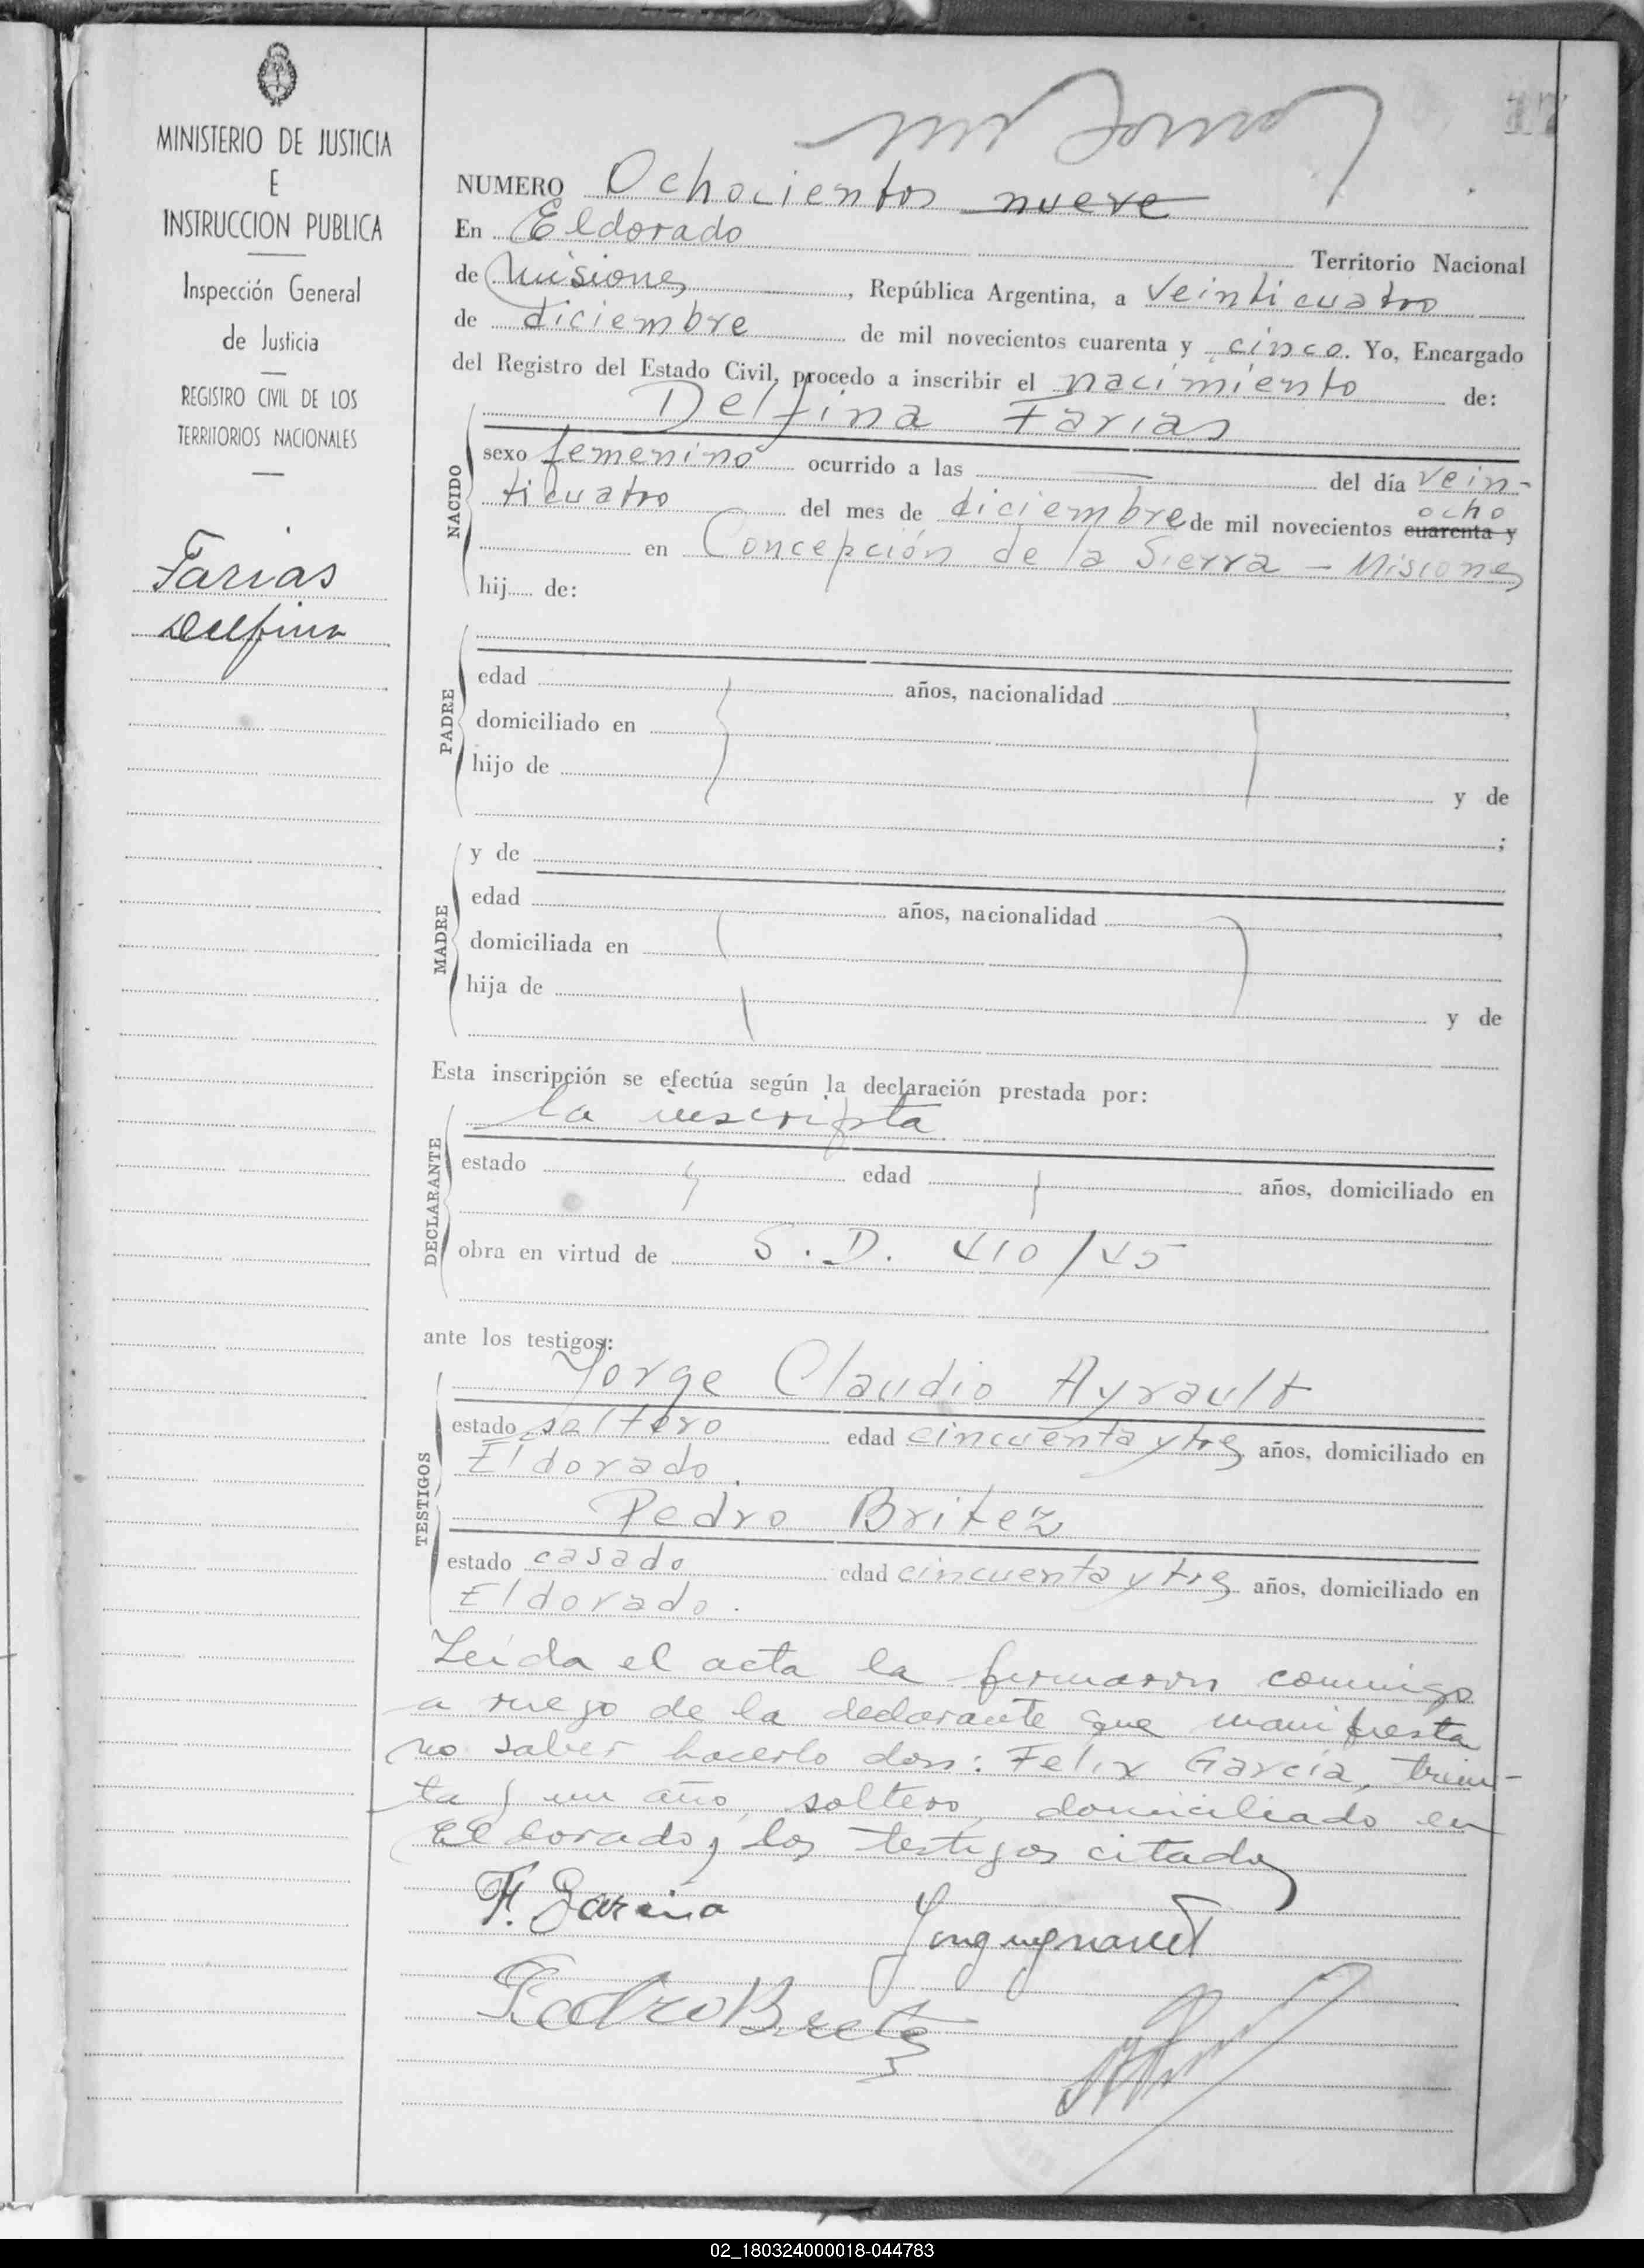 MINISTERIO DE JUSTICIA
E
INSTRUCCION PUBLICA
Inspección General
de Justicia
REGISTRO CIVIL DE LOS
TERRITORIOS NACIONALES
Farias
Delfina
17
NUMERO Ochocientos nueve
En Eldorado Territorio Nacional
de Misiones, República Argentina, a veinticuatro
de diciembre de mil novecientos cuarenta y cinco. Yo, Encargado
del Registro del Estado Civil, procedo a inscribir el nacimiento de:
Delfina Farias
NACIDO
sexo femenino ocurrido a las del día vein-
ticuatro del mes de diciembre de mil novecientos cuarenta y
ocho
en Concepción de la Sierra - Misiones
hij..... de:
PADRE
edad años, nacionalidad
domiciliado en
hijo de y de
;
MADRE
y de
edad años, nacionalidad
domiciliada en
hija de y de
Esta inscripción se efectúa según la declaración prestada por:
la inscripta
DECLARANTE
estado edad años, domiciliado en
obra en virtud de S. D. 410/45
ante los testigos:
Jorge Claudio Ayrault
TESTIGOS
estado soltero edad cincuenta y tres años, domiciliado en
Eldorado.
Pedro Britez
estado casado edad cincuenta y tres años, domiciliado en
Eldorado.
Leída el acta la firmaron conmigo
a ruego de la declarante que manifiesta
no saber hacerlo don: Felix García, trein-
ta y un año, soltero, domiciliado en
Eldorado y los testigos citados
F. Garcia
Pedro Britez
02_180324000018-044783